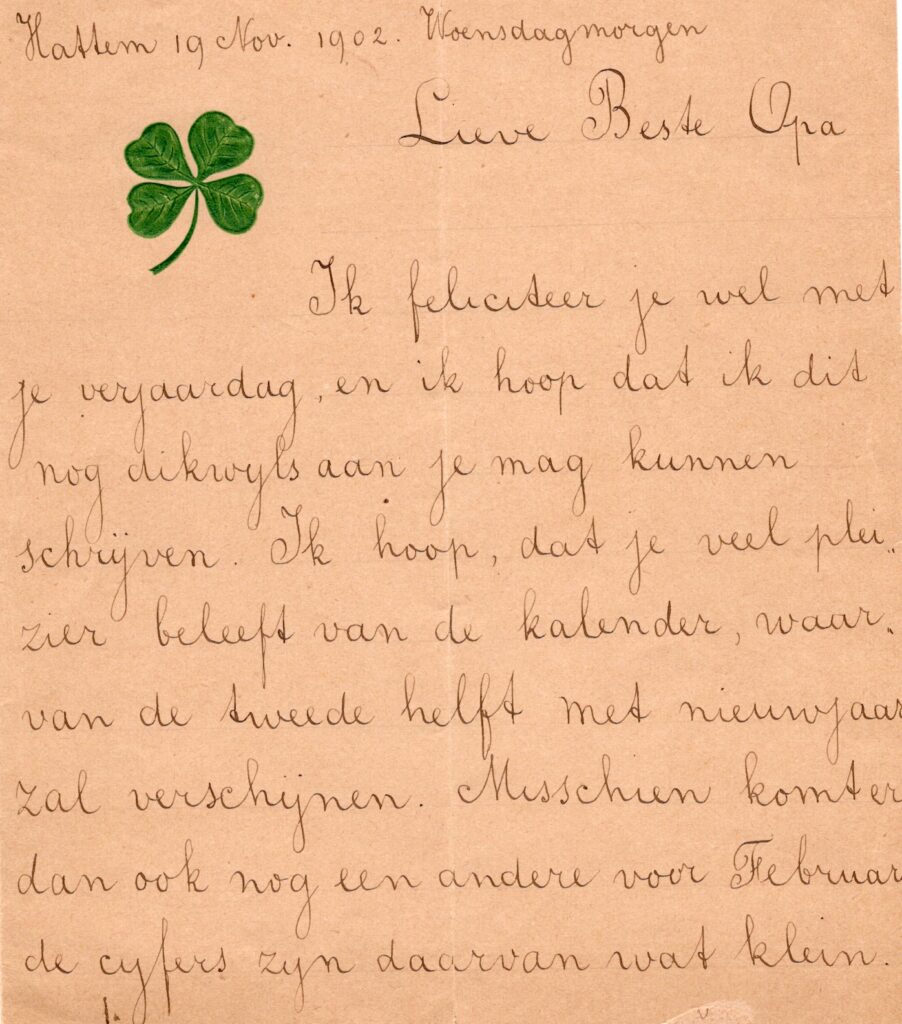 Hattem 19 Nov. 1902. Woensdagmorgen
Lieve Beste Opa
Ik feliciteer je wel met
je verjaardag, en ik hoop dat ik dit
nog dikwyls aan je mag kunnen
schrijven. Ik hoop, dat je veel plei„
zier beleeft van de kalender, waar„
van de tweede helft met nieuwjaar
zal verschijnen. Misschien komt er
dan ook nog een andere voor Februar
de cyfers zyn daarvan wat klein.